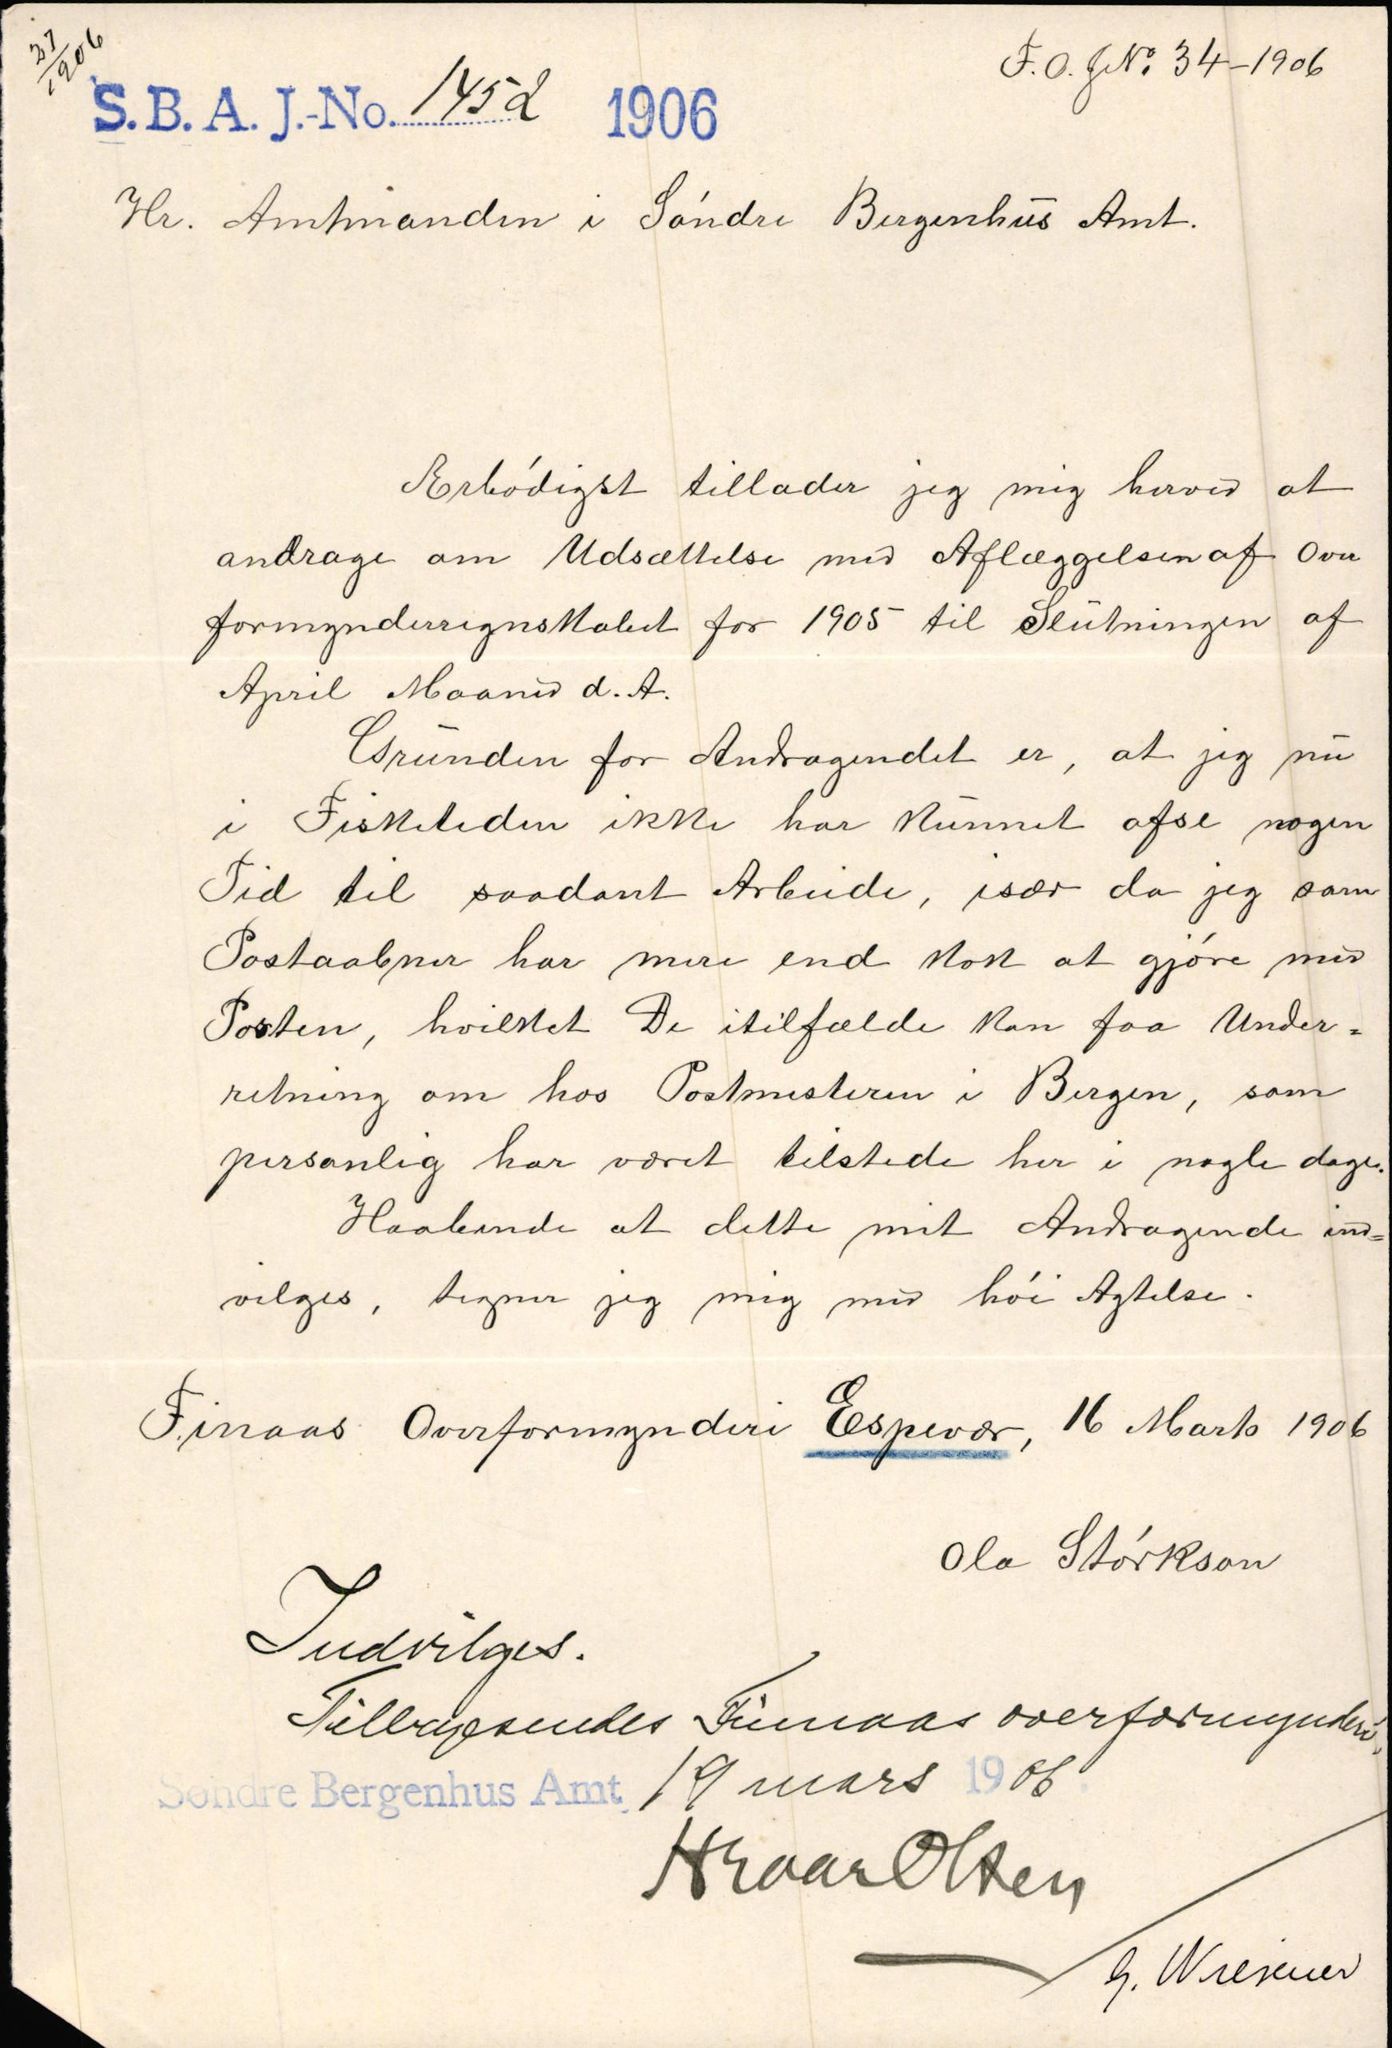 27/1906
F.O. J.No. 34-1906
S.B.A. J.-No. 1452 1906
Hr. Amtmanden i Søndre Bergenhus Amt.
Ærbødigst tillader jeg mig herved at
andrage om Udsættelse med Aflæggelsen af Over
formynderregnskabet for 1905 til Slutningen af
April Maaned d. A.
Grunden for Andragendet er, at jeg nu
i Fisketiden ikke har kunnet afse nogen
Tid til saadant Arbeide, især da jeg som
Postaabner har mere end nok at gjøre med
Posten, hvilket De itilfælde kan faa Under-
retning om hos Postmesteren i Bergen, som
personlig har været tilstede her i nogle dage.
Haabende at dette mit Andragende ind=
vilges, tegner jeg mig med høi Agtelse.
Finaas Overformynderi Espevær, 16 Marts 1906
Ola Størkson
Indvilges.
Tilbagesendes Finnaas overformynderi.
Søndre Bergenhus Amt, 19 mars 1906.
Hroar Olsen
G. Wiesener